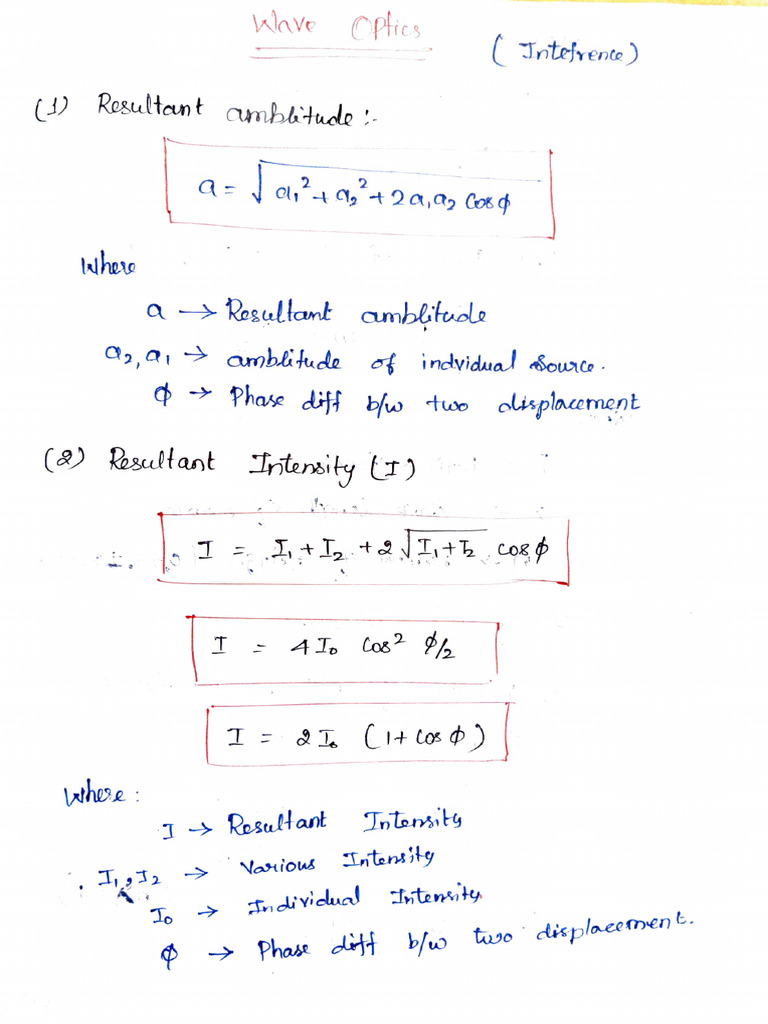 Wave Optics
(Intefrence)
(1) Resultant amblitude :-
a = √a₁² + a₂² + 2a₁a₂ cosϕ
Where
a → Resultant amblitude
a₂, a₁ → amblitude of indvidual source.
ϕ → Phase diff b/w two displacement
(2) Resultant Intensity (I)
I = I₁ + I₂ + 2√I₁+I₂ cosϕ
I = 4I₀ cos² ϕ/2
I = 2I₀ (1 + cosϕ)
Where :
I → Resultant Intensity
I₁, I₂ → Various Intensity
I₀ → Individual Intensity.
ϕ → Phase diff b/w two displacement.